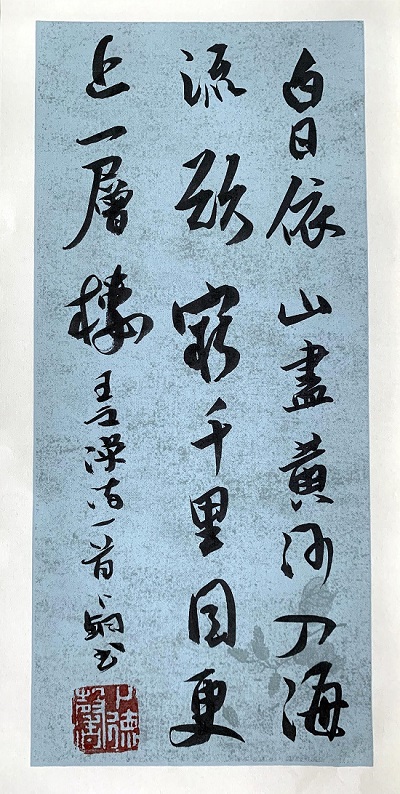 白日依山盡黃河入海
流欲窮千里目更
上一層樓 王之渙詩一首 翁書